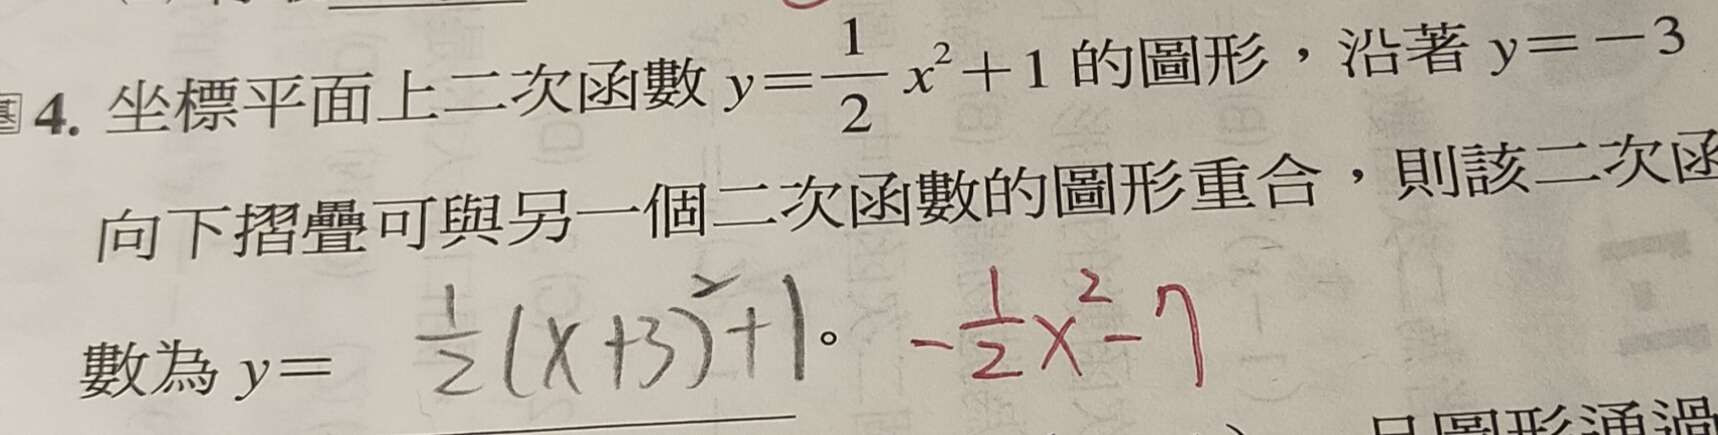 基 4. 坐標平面上二次函數 y=1/2 x²+1 的圖形，沿著 y=-3
向下摺疊可與另一個二次函數的圖形重合，則該二次函
數為 y= 1/2(x+3)²+1。 -1/2x²-7
且圖形通過